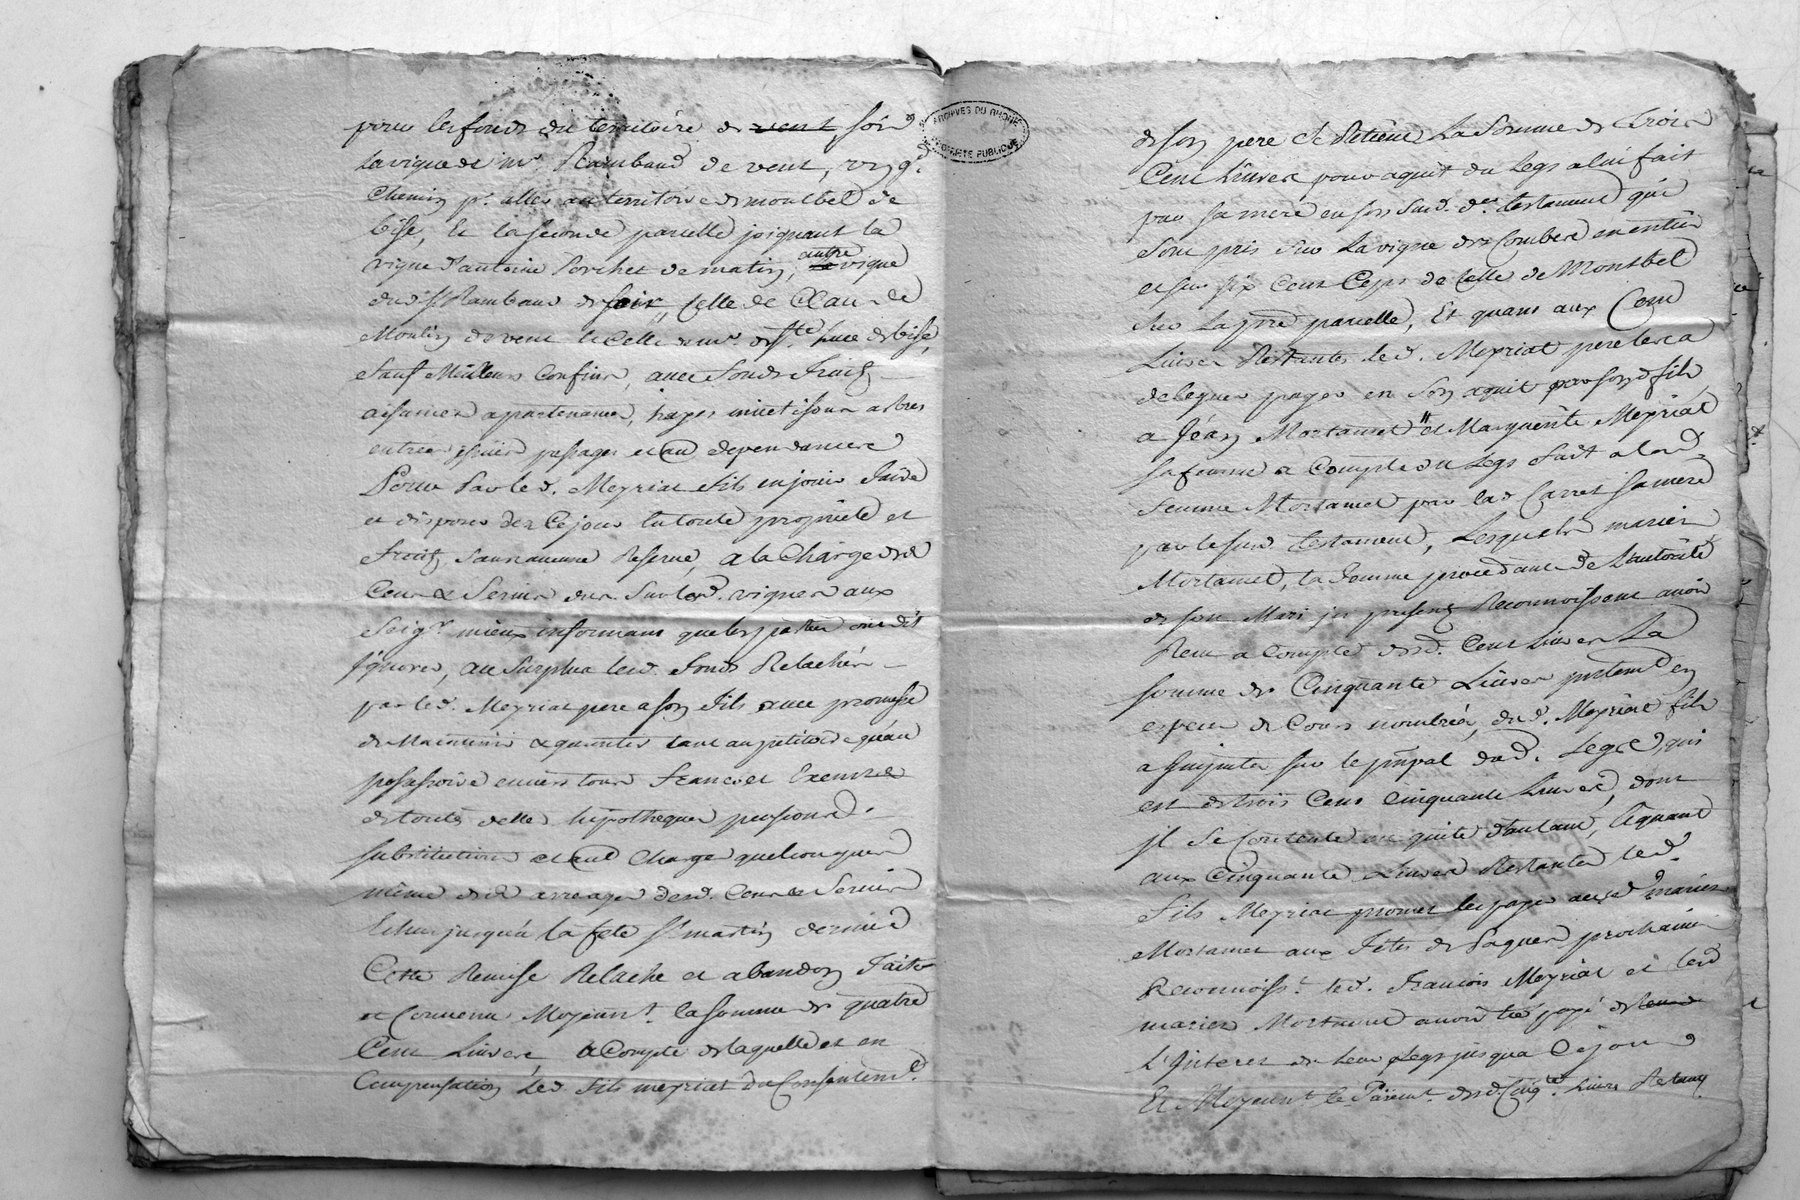 pour les fonds du territoire de vent soir
la vigne de mr. Rambaud de vent, un g.d
Chemin pr. aller au territoire de montbel de
bise, Et la seconde parcelle joignant la
vigne d'antoine Porchet de matin, autre vigne
dud. Sr. Rambaud de soir, Celle de Claude
Moulin de vent & Celle de mr. de Ste. luce de bise,
Sauf Meilleurs Confins, avec fonds fruits
aisances apartenances, hayes arbres
entrées issües passages et au dependances
Pour Par led. Meyriat fils en jouir faire
et disposer dez Ce jour en toute proprieté et
fruits sans aucune Reserve, a la Charge des
Cens & Servis dus Sur lesd. vignes aux
Seigrs. mieux informans que les parties ont dit
ignorer, au Surplus lesd. fonds Relachés
par led. Meyriat pere a son fils avec promesse
de Maintenir & garantir tant au petitoire qu'au
possessoire envers tous Francs et Exempts
de toute dette hipotheques pensions
substitution et au Charges quelconques
même des arreages desd. Cens & Servis
Echus jusqu'a la fete St. martin derniere
Cette Remise Relache et abandon faite
et Convenu Moyennt. la somme de quatre
Cent Livres, a Compte de laquelle et en
Compensation, led. fils meyriat du Consentemt.
ARCHIVES DU RHONE
PROPRIETE PUBLIQUE
de son pere a Retenu La Somme de Trois
Cent Livres pour aquit du Legs a lui fait
par sa mere en son Susd. der. testament qui
Sont pris Sur La vigne des Combes en entier
et sur six Cent Ceps de Celle de Montbel
Sur La pre. parcelle, Et quant aux Cent
Livres Restantes led. Meyriat pere les a
delegués payer en Son aquit par sond. fils
a Jean Mortamet et Marguerite Meyriat
sa femme a Compte du Legs fait a lad.
femme Mortamet par lad. Carret sa mere
par le susd. testament, Lesquels mariés
Mortamet, la femme procedante de L'autorité
de son Mari ici presents Reconnoissent avoir
Reçu a Compte desd. Cent Livres La
somme de Cinquante Livres presentemt. en
especes de Cours nombrée, dud. Meyriat fils
a Su le prinpal dud. Legs qui
est de trois Cent Cinquante Livres, dont
il Se Contente en quite d'autant, Et quant
aux Cinquante Livres Restantes led.
fils Meyriat promet les payer auxd. mariés
Mortamet aux fetes de Paques prochaines
Reconnoisst. led. Francois Meyriat et lesd
mariés Mortamet avoir été payé de
L'Interet de Leur Legs jusqu'a Ce jour
Et Moyennt. le Paiemt. desd. Cinqte. Livres Restant